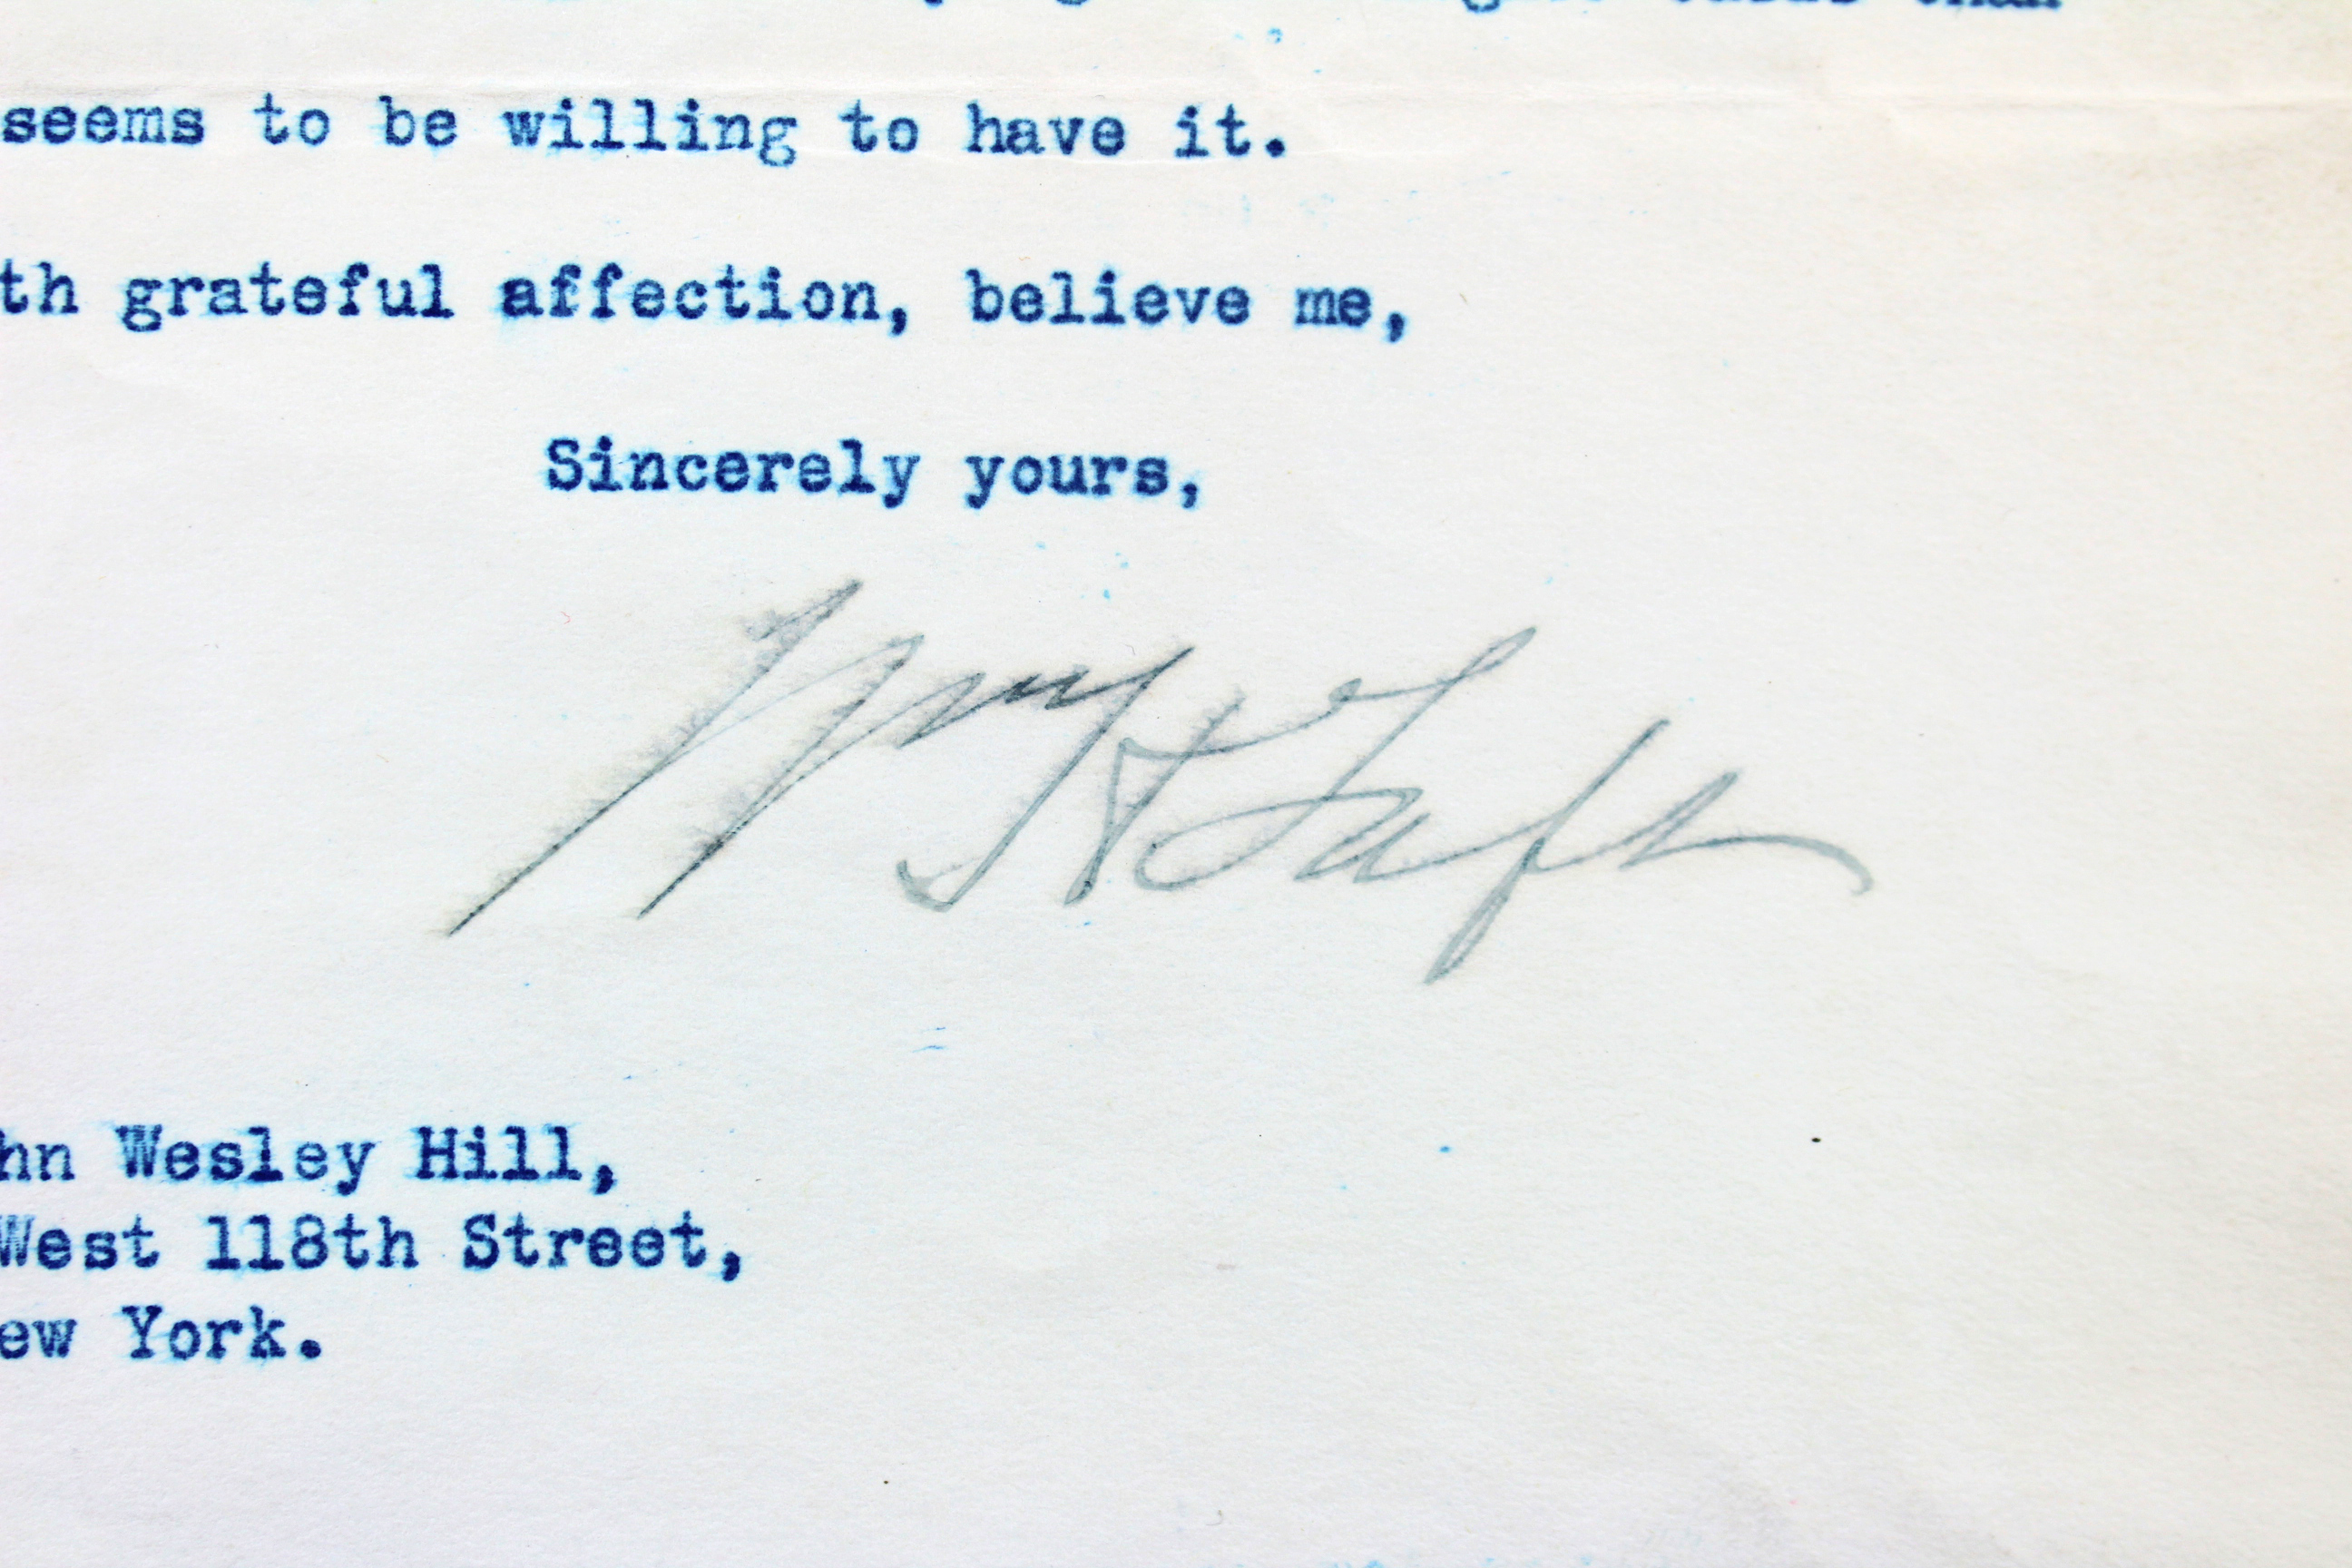 than
seems to be willing to have it.
th grateful affection, believe me,
Sincerely yours,
Wm H Taft
hn Wesley Hill,
West 118th Street,
ew York.